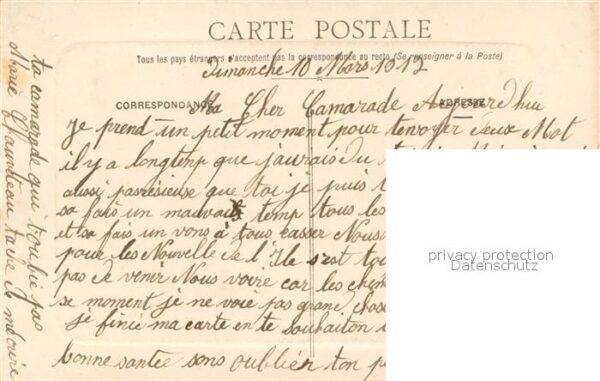 CARTE POSTALE
Tous les pays étrangers n'acceptent pas la correspondance au recto (Se renseigner à la Poste)
Dimanche 10 Mars 1912
CORRESPONDANCE
ADRESSE
Ma Cher Camarade Aujourd'hui
Je prend un petit moment pour t'envoyer deux Mot
il y a longtenp que j'aurais du
aussi parésieuse que toi je puis
sa fais un mauvais temp tous les
et sa fais un vons à tous casser Nous
pour les Nouvelle de l'Ile s'est tou
pas de venir Nous voire car les chem
se moment je ne voie pas grand chose
je finie ma carte en te souhaiton
bonne santée sons oublier ton p
ta camarade qui t'oublie pas
Marie
privacy protection
Datenschutz